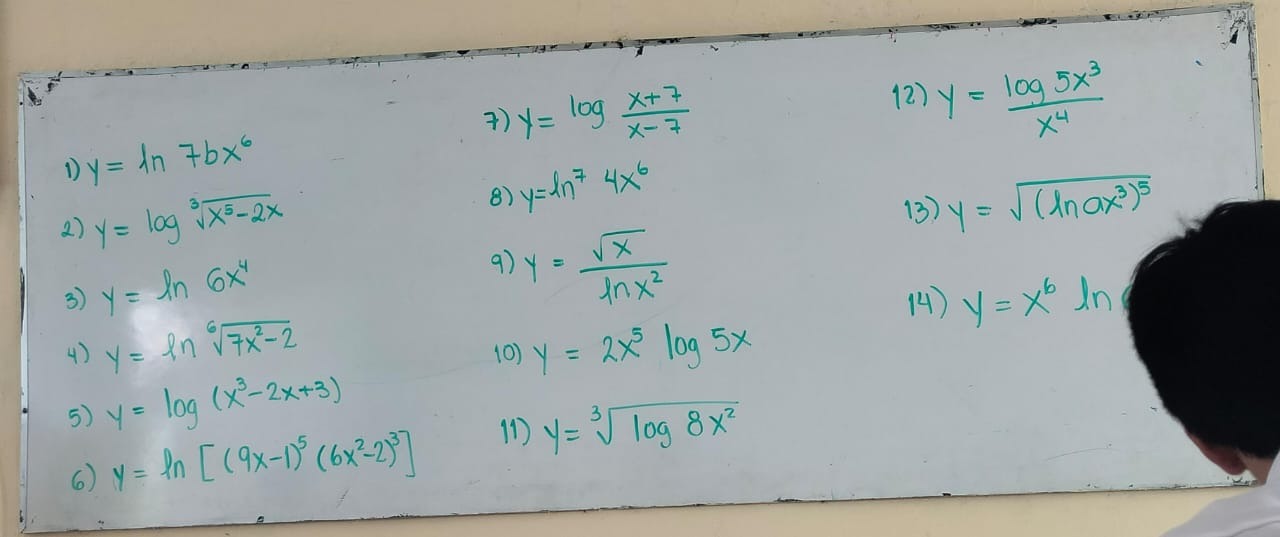 1) y = ln 7bx⁶
2) y = log ∛(x⁵-2x)
3) y = ln 6x⁴
4) y = ln ⁶√(7x²-2)
5) y = log (x³-2x+3)
6) y = ln [(9x-1)⁵ (6x²-2)³]
7) y = log (x+7)/(x-7)
8) y = ln⁷ 4x⁶
9) y = √x / ln x²
10) y = 2x⁵ log 5x
11) y = ∛(log 8x²)
12) y = log 5x³ / x⁴
13) y = √((ln ax³)⁵)
14) y = x⁶ ln